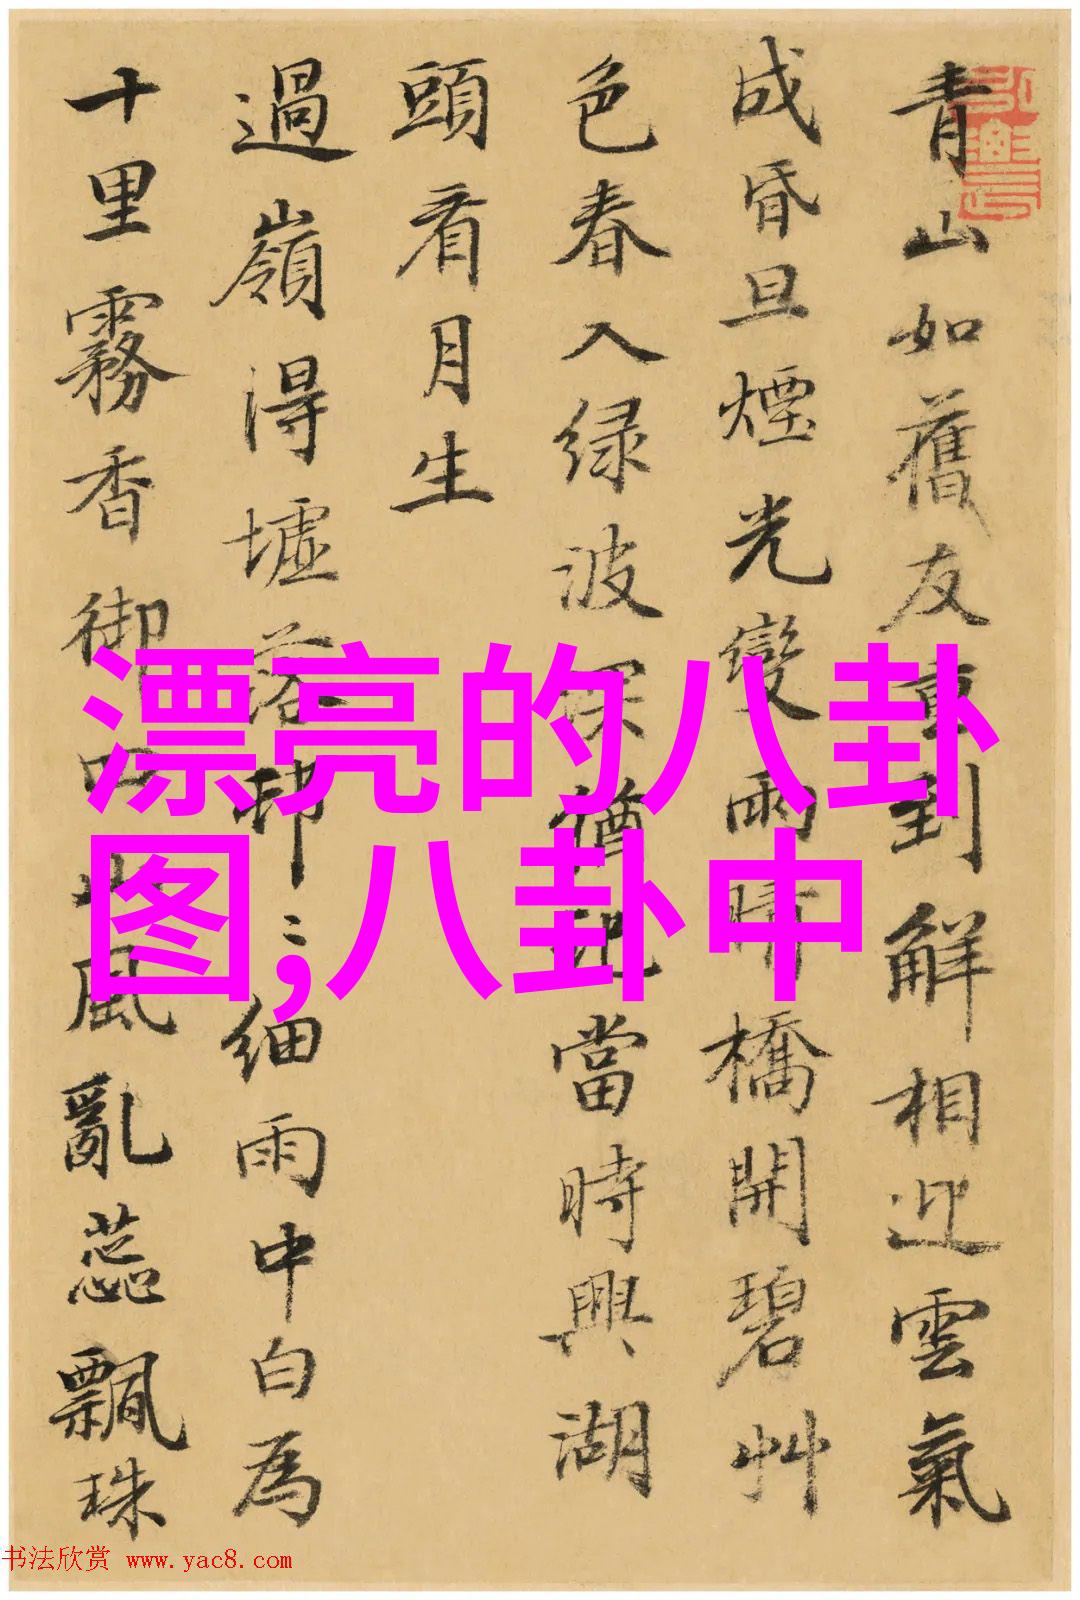 青山如舊友重到解相迎雲氣
成昏旦煙光變雨晴橋開碧艸
色春入绿波深猶記當時興湖
頭看月生
過嶺得墟落邨〻细雨中白為
十里霧香御四山風亂蕊飄珠
漂亮的八卦
图;八卦中
书法欣赏 www.yac8.com